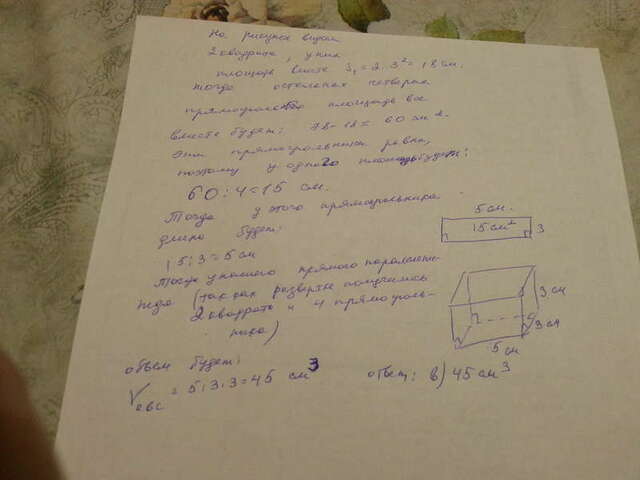 На рисунке видим
2 квадрата, у них
площадь вместе S₁ = 2·3² = 18 см.
тогда остальных четырех
прямоугольника площадь все
вместе будет: 78-18= 60 см 2.
Эти прямоугольники равны,
поэтому у одного площадь будет:
60:4=15 см.
Тогда у этого прямоугольника
длина будет:
15:3=5 см
5 см.
15 см²
3
Тогда у нашего прямого параллепи-
педа (так как развертке получились
2 квадрата и 4 прямоуголь-
ника)
3 см
3 см
5 см
объем будет:
V авс = 5·3·3=45 см³
ответ: в) 45 см³